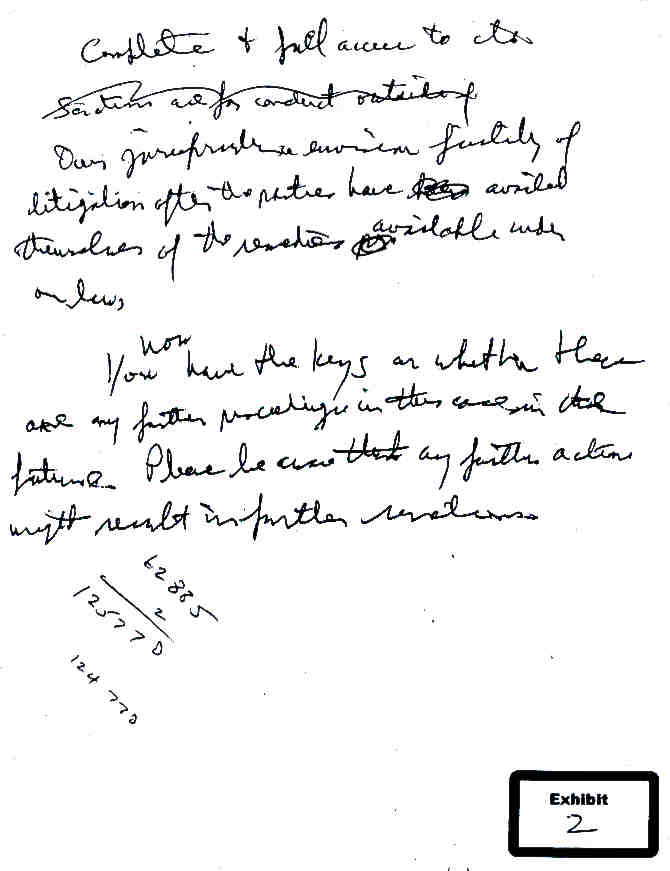 Complete & full access to
Sanctions are for conduct outside of
Our jurisprudence envision finality of
litigation after the parties have availed
themselves of the remedies available under
our laws
now
You have the keys on whether there
are any further proceedings in this case in the
future. Please be aware that any further actions
might result in further sanctions
62885
2
125770
124 770
Exhibit
2